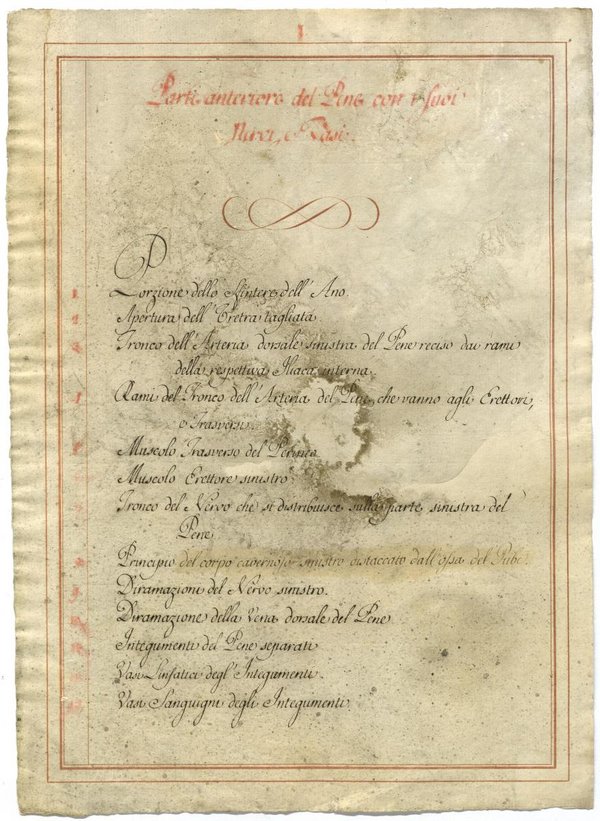 Parte anteriore del Pene con i suoi
Nervi, e Vasi.
Porzione dello Sfintere dell'Ano.
Apertura dell'Uretra tagliata.
Tronco dell'Arteria dorsale sinistra del Pene reciso dai rami
della respettiva Iliaca interna.
Rami del Tronco dell'Arteria del Pene, che vanno agli Erettori,
e Trasversi.
Muscolo Trasverso del Perineo.
Muscolo Erettore sinistro.
Tronco del Nervo che si distribuisce sulla parte sinistra del
Pene.
Principio del corpo cavernoso sinistro distaccato dall'ossa del Pube.
Diramazione del Nervo sinistro.
Diramazione della Vena dorsale del Pene.
Integumenti del Pene separati.
Vasi Linfatici degl'Integumenti.
Vasi Sanguigni degli Integumenti.